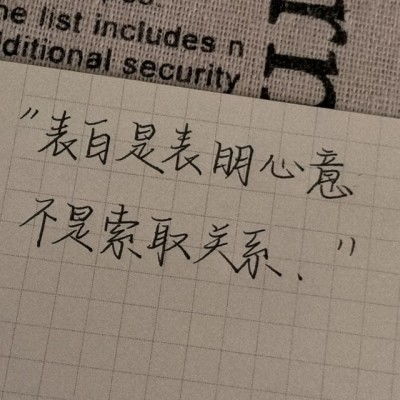 he list includes n
dditional security
rr
"表白是表明心意
不是索取关系."